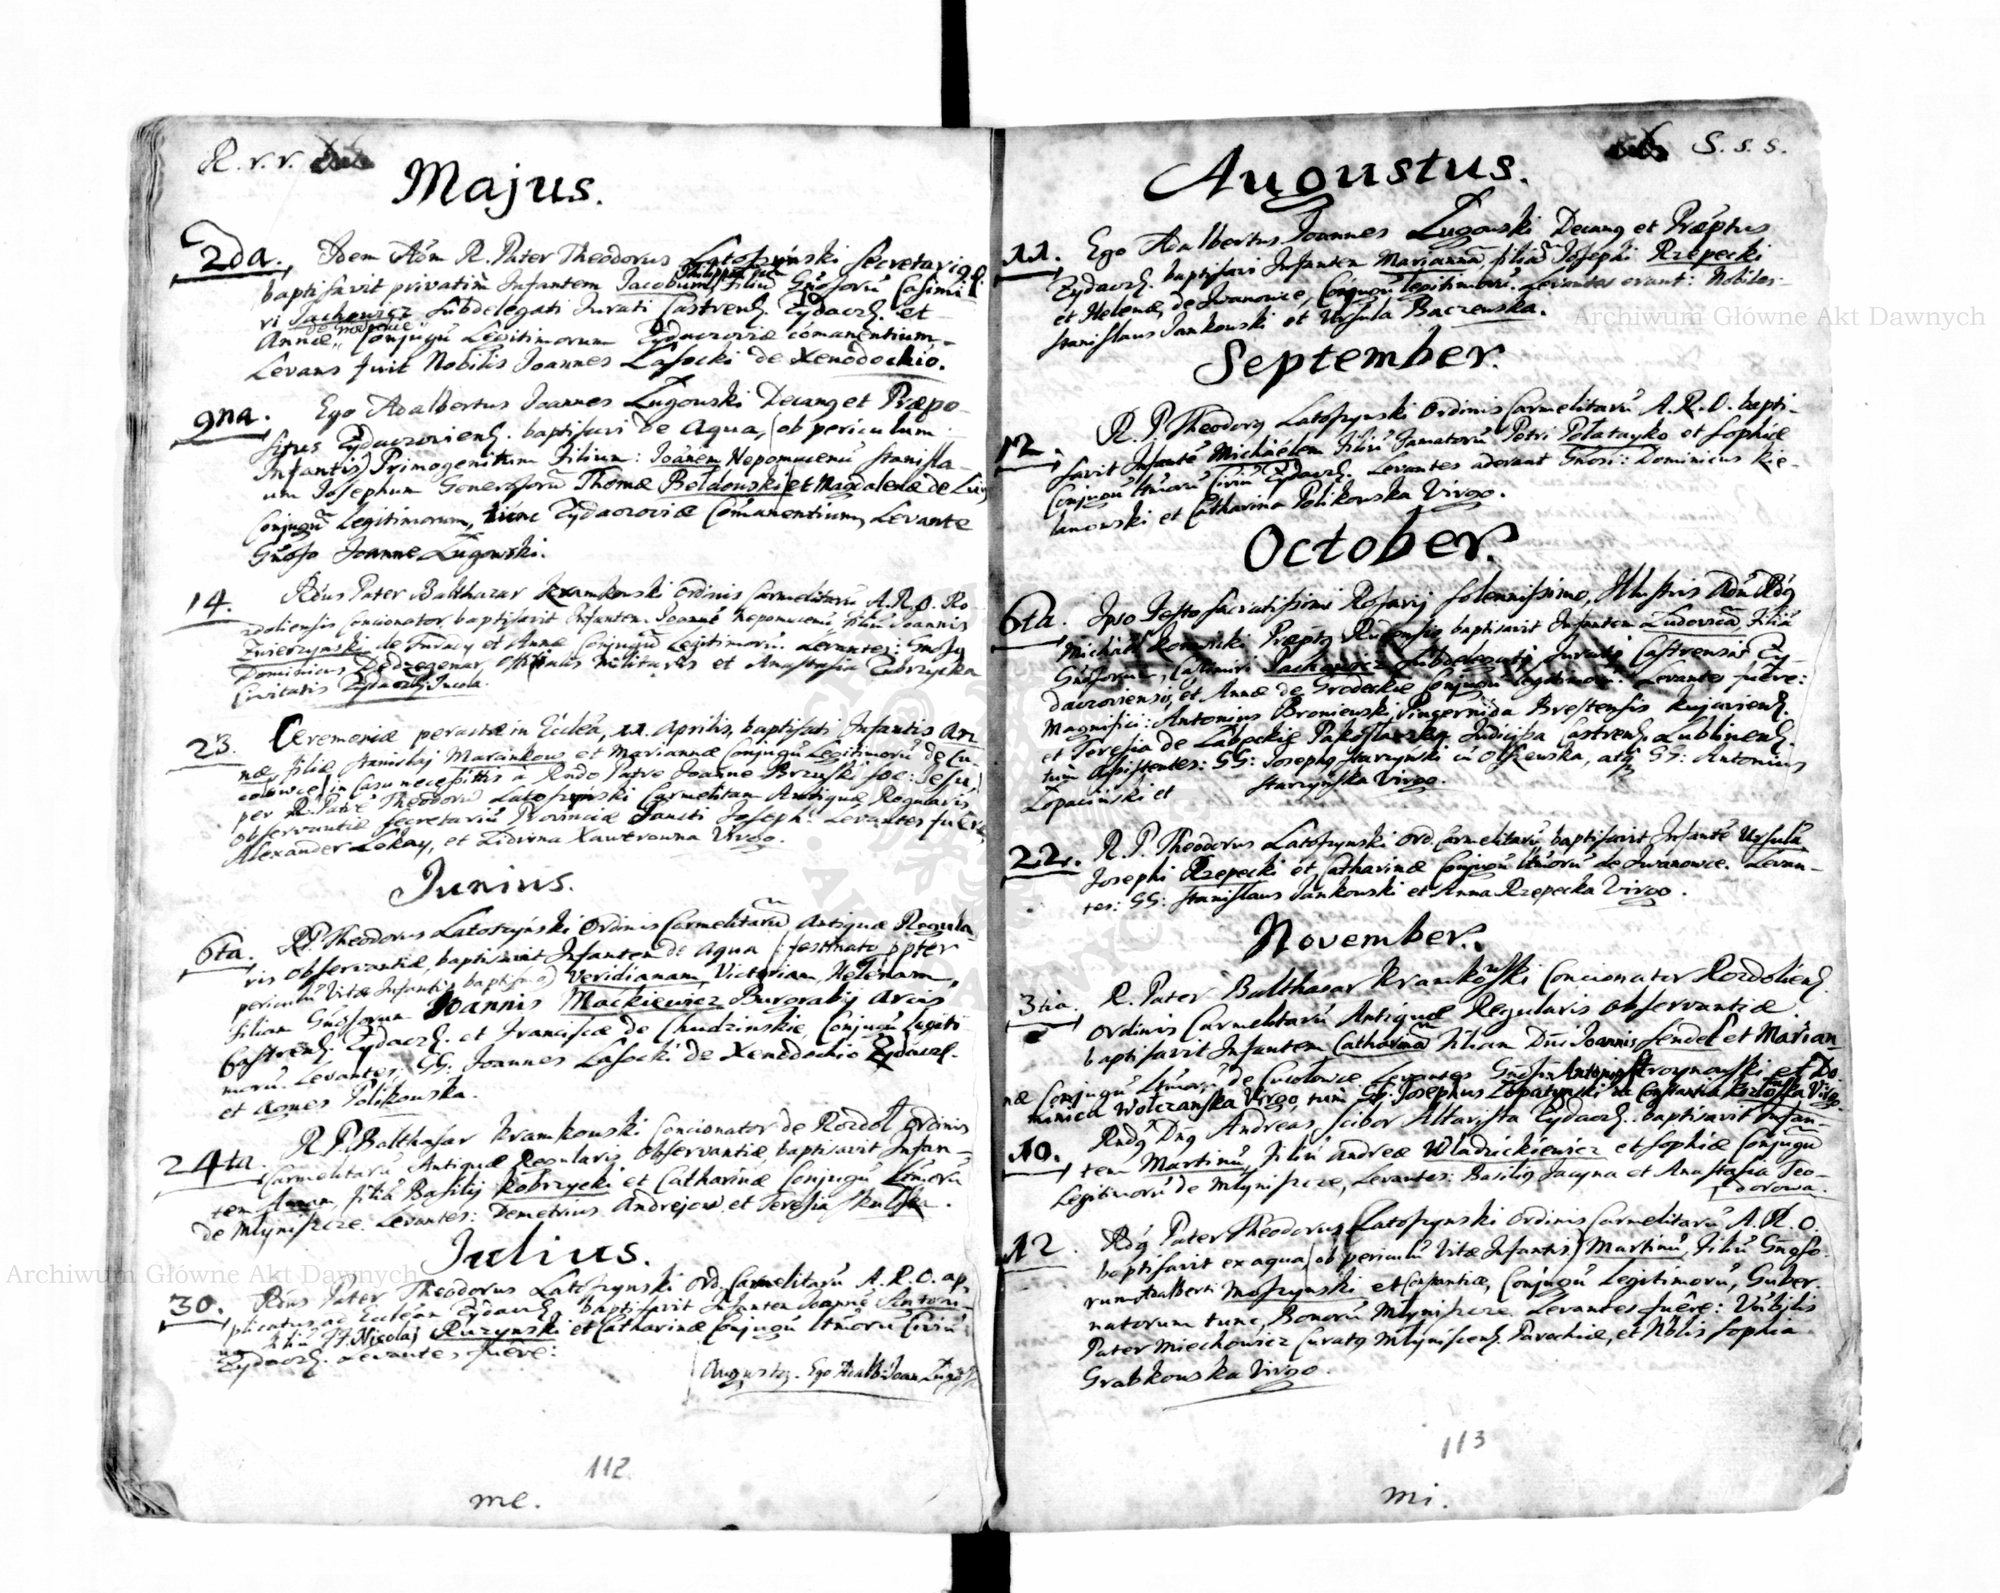 R. r. r.
Majus.
2da. Idem Adm R. Pater Theodorus Latoszynski Secretarius
baptisavit privatim Infantem Jacobum Philippum Filiu Gnosoru Casimi-
ri Jachowicz Subdelegati Jurati Castrens. Zydacz. et
Annæ de Grodeckie Conjugu Legitimorum Zydaczoviæ comanentium.
Levans fuit Nobilis Joannes Lasocki de Xenodochio.
9na. Ego Adalbertus Joannes Ługowski Decang et Præpo-
situs Zydaczoviens. baptisavi de Aqua, (ob periculum
Infantis) Primogenitum Filium: Joanem Nepomucenu Stanisla-
um Josephum Generosoru Thomæ Beldowski et Magdalenæ de
Conjugu Legitimorum, tunc Zydaczoviæ Comanentium, Levante
Gnoso Joanne Ługowski.
14. Rdus Pater Balthazar Kramkowski Ordinis Carmelitaru A. R. O. Ro-
zdoliensis Concionator, baptisavit Infantem Joanne Nepomucenu, filiu Joannis
Zwierzynski de Turady et Annæ Conjugu Legitimoru. Levantes: Gnosg
Dominicus Officialis Militaris et Anastasia Zubrzycka
Civitatis Zydacz. Incola.
23. Ceremoniæ peractæ in Ecclea, 11. Aprilis, baptisati Infantis An-
næ, filiæ Stanislaj Marankows et Mariannæ Conjugu Legitimoru de Cu-
colowce, in Casu necessittis a Rndo Patre Joanne Brzuski Soc: Jesu,
per R. Patre Theodoru Latoszynski Carmelitam Antiquæ Regularis
observantiæ Secretariu Provinciæ Sancti Joseph. Levantes fuere,
Alexander Lekay, et Zidivna Xawerowna Virgo.
Junius.
6ta. R.P. Theodorus Latoszyński Ordinis Carmelitaru, Antiquæ Regula-
ris Observantiæ, baptisavit Infantem de Aqua (festinato ppter
periculu Vitæ Infantis baptismo) Veridianam, Victoriam, Helenam,
Filiam Gnosorum Joannis Mackiewicz Burgrabij Arcis
Castrens. Zydacz. et Franciscæ de Chudzinskie, Conjugu Legiti-
moru. Levantes: GG: Joannes Lasocki de Xenodochio Zydacz.
et Agnes Polikowska.
24ta. R. P. Balthasar Kramkowski Concionator de Rozdol Ordinis
Carmelitaru Antiquæ Regularis Observantiæ, baptisavit Infan-
tem Annam, filia Basilij Kobrzycki et Catharinæ Conjugu Ltmoru
de Mlynisczce. Levantes: Demetrius Andrejow et Teresia Skulska.
Julius.
30. Rdus Pater Theodorus Latoszynski Ord. Carmelitaru A. R. O. ap-
plicatus ad Eccleam Zydacz. baptisavit Infantem Joanne Antoni-
um Filiu Nicolaj Ruzynski et Catharinæ Conjugu Ltmoru Civiu
Zydacz. Levantes fuere:
Augustg. Ego Adalb: Joan
112
me.
S. s. s.
Augustus.
11. Ego Adalbertus Joannes Ługowski Decang et Præptus
Zydacz. baptisavi Infantem Marianna, filia Josephi Rzepecki
et Helenæ de Iwanowce, Conjugu legitimoru. Levantes erant: Nobiles
Stanislaus Jankowski et Ursula Baczewska.
September.
12. R. P. Theodorg Latoszynski Ordinis Carmelitaru A. R. O. bapti-
savit Infante Michaelem Filiu Famatoru Petri Polatayko et Sophiæ
Conjugu Ltmoru Civiu Zydacz. Levantes aderant Gnosi: Dominicus Kie-
lanowski et Catharina Polikowska Virgo.
October.
6ta. Ipso Festo Sacratissimi Rosarij Solennissimo, Illustris Adm Rdg
Michael Præptg Rudensis, baptisavit Infantem Ludovica, Filia
Gnosorum, Casimiri Jachowicz Subdelegati Jurati Castrensis Zy-
daczoviensis, et Annæ de Grodeckie Conjugu Legitimoru. Levantes fuere:
Magnifici: Antonius Broniewski, Pincernida Brestensis Kujaviens.
et Teresia de Labeckie Judicissa Castrens. Lublinens.
tum Assistentes: GG: Josephg Starzynski atq GG: Antonius
Lopaciński et Starzynska Virgo.
22. R. P. Theodorus Latoszynski Ord. Carmelitaru baptisavit Infante Ursula
Josephi Rzepecki et Catharinæ Conjugu Ltmoru de Iwanowce. Levan-
tes: GG: Stanislaus Jankowski et Anna Rzepecka Virgo.
November.
3tia. R. Pater Balthasar Kramkowski Concionator Rozdoliens.
Ordinis Carmelitaru Antiquæ Regularis Observantiæ
baptisavit Infantem Catharina Filiam Dni Joannis Sendel et Marian-
næ Conjugu Ltmoru de Cucolowce. Levantes Gnosi Antonius et Do-
minica Wolczanska Virgo, tum GG: Josephus Lopatynski et Constantia Virgo.
10. Rndg Dng Andreas Scibor Altarista Zydacz. baptisavit Infan-
tem Martinu, Filiu Andreæ Wladzickiewicz et Sophiæ Conjugu
Legitimoru de Mlynisczce, Levantes: Basilig Jacyna et Anastasia Teo-
dorowa.
12. Rdg Pater Theodorus Latoszynski Ordinis Carmelitaru A. R. O.
baptisavit ex aqua (ob periculu Vitæ Infantis) Martinu, Filiu Gnoso-
rum Adalberti Moszynski et Constantiæ, Conjugu Legitimoru, Guber-
natorum tunc, Bonoru Mlynisczce. Levantes fuere: Vnbilis
Pater Miechowicz Curatg Mlyniscens. Parochiæ, et Nblis Sophia
Grabkowska Virgo.
113
mi.
Archiwum Główne Akt Dawnych
Archiwum Główne Akt Dawnych